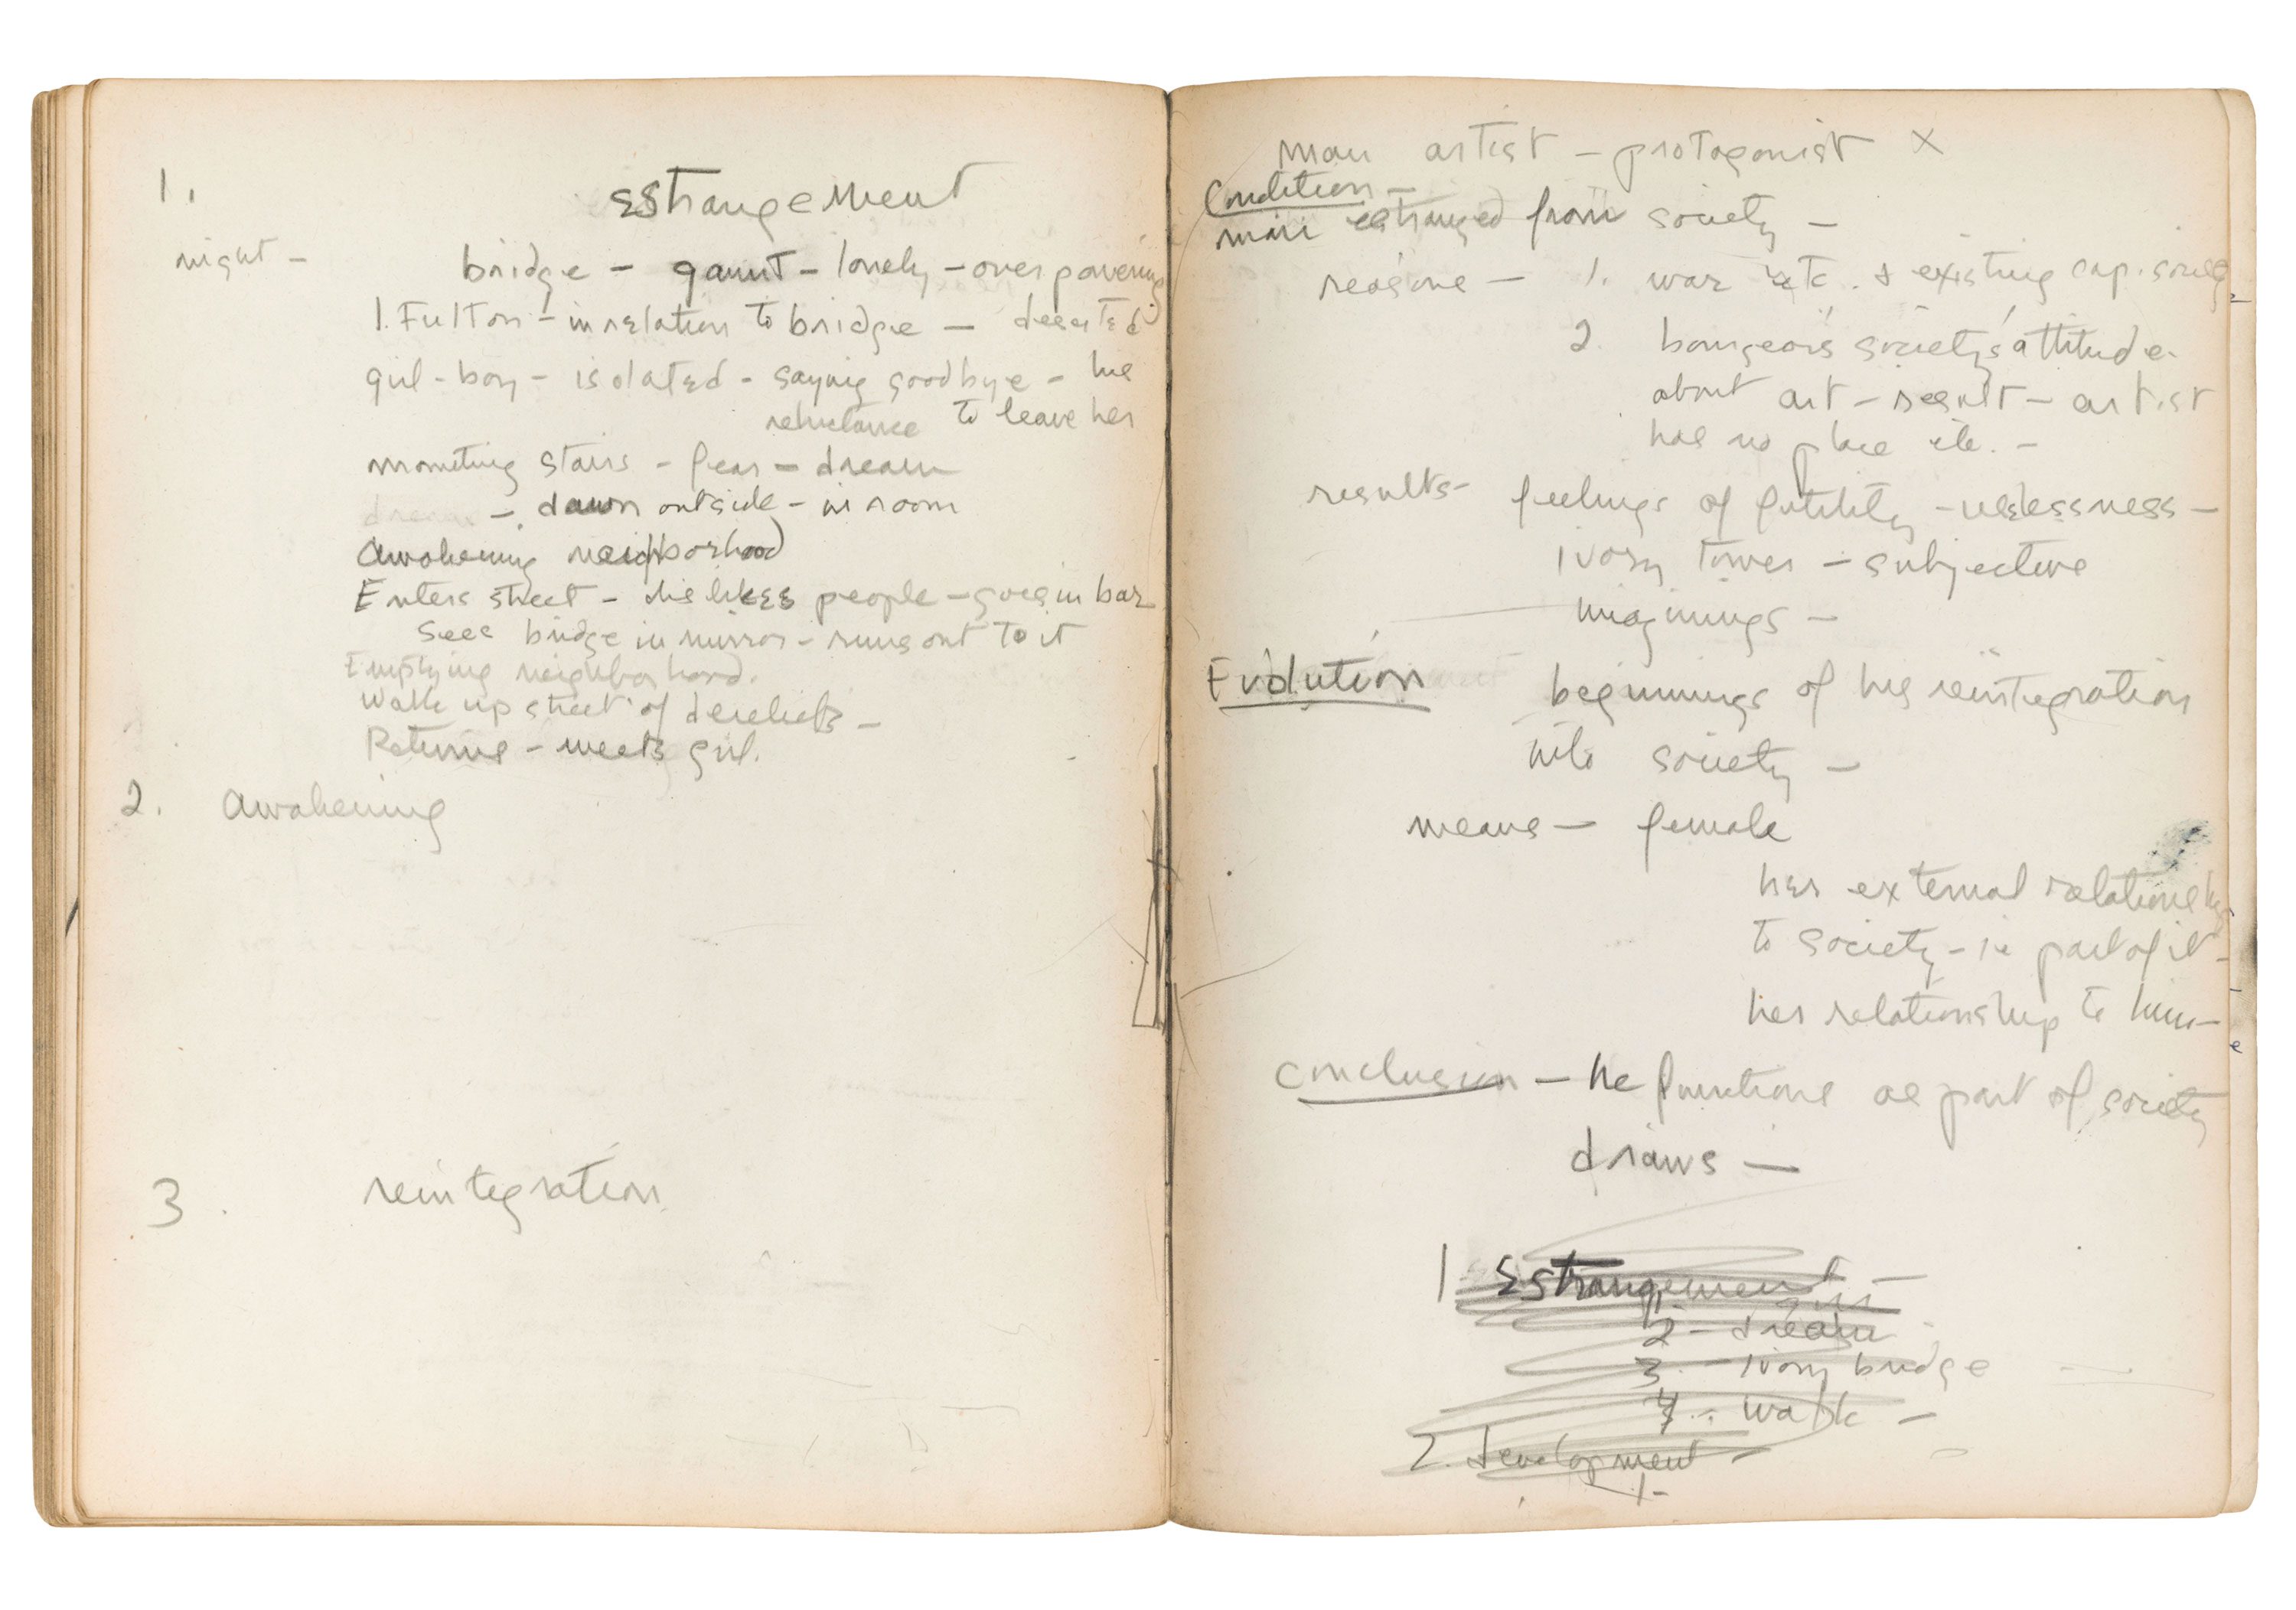 1. Estrangement
night - bridge - gaunt - lonely - overpowering
1. Fulton - in relation to bridge - deserted
girl - boy - isolated - saying goodbye - his
reluctance to leave her
mounting stairs - fear - dream
dream - dawn outside - in room
Awakening neighborhood
Enters street - dislikes people - goes in bar
sees bridge in mirror - runs out to it
Emptying neighborhood.
Walk up street of derelicts -
Returns - meets girl.
2. Awakening
3. reintegration
man artist - protagonist x
Condition -
man estranged from society -
reasons - 1. war etc. & existing cap. society
2. bourgeois society's attitude
about art - result - artist
has no place etc. -
results - feelings of futility - uselessness -
ivory tower - subjective
imaginings -
Evolution beginnings of his reintegration
into society -
means - female
her external relationship
to society - is part of it -
her relationship to him -
Conclusion - he functions as part of society
draws -
1 Estrangement -
2 - dream
3. - ivory bridge
4. - walk -
2. development -
1 -